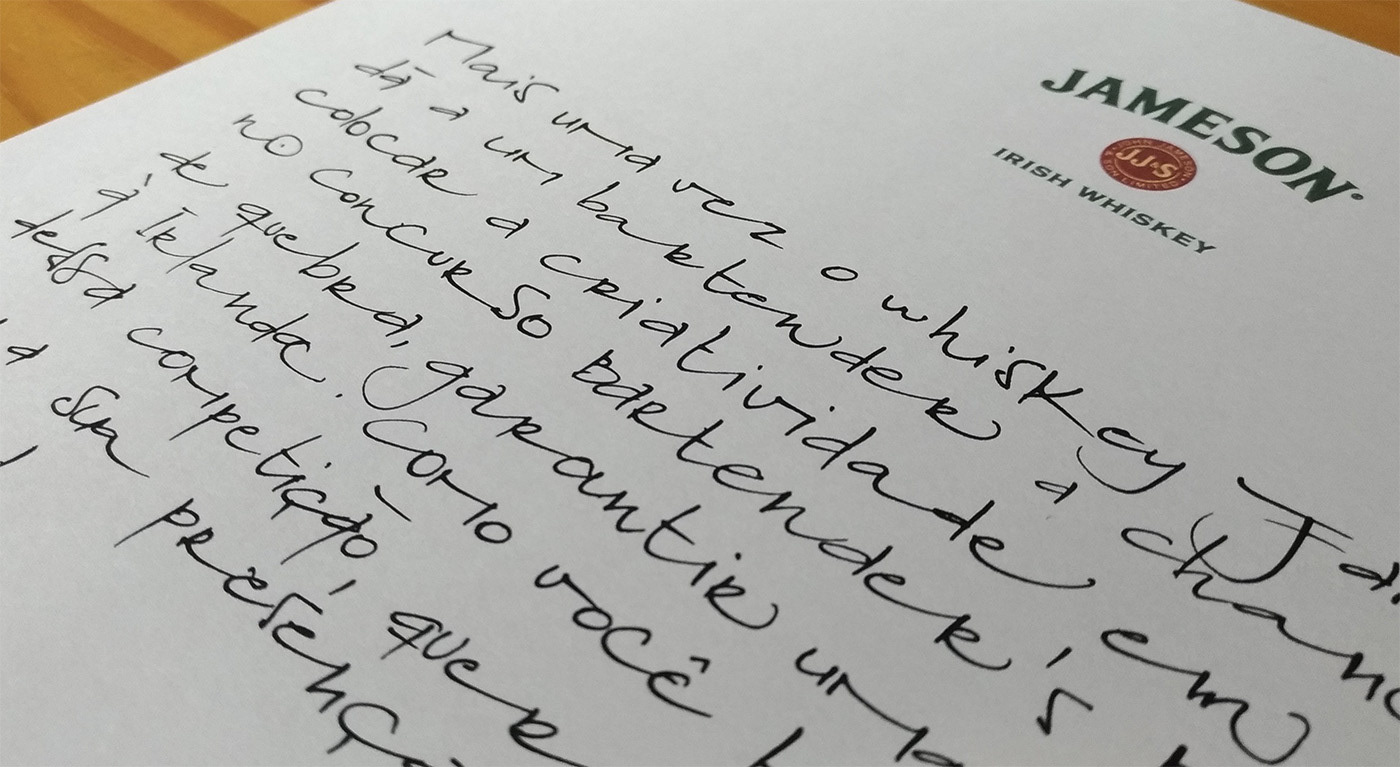 JAMESON
JOHN JAMESON
JJ&S
& SON LIMITED
IRISH WHISKEY
Mais uma vez o whiskey Ja
dá a um bartender a chanc
colocar a criatividade em
no concurso Bartender's
de quebra, garantir uma
à Irlanda. Como você
dessa competição, quer
a sua presenç